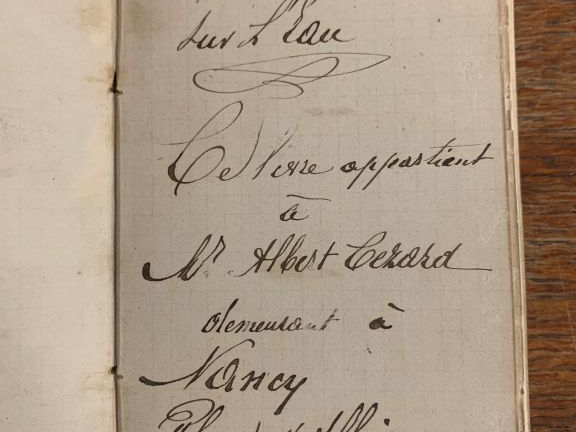 sur L'Eau
Ce Livre appartient
à
Mr Albert Cezard
demeurant à
Nancy